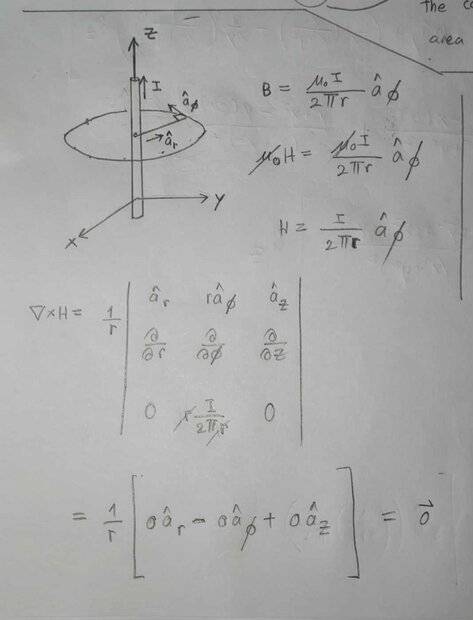 the
area
Z
I
â_ϕ
â_r
Y
X
B = μ₀I / 2πr â_ϕ
μ₀H = μ₀I / 2πr â_ϕ
H = I / 2πr â_ϕ
∇×H = 1/r | â_r râ_ϕ â_z
∂/∂r ∂/∂ϕ ∂/∂z
0 r I/2πr 0 |
= 1/r [ 0â_r - 0â_ϕ + 0â_z ] = 0⃗